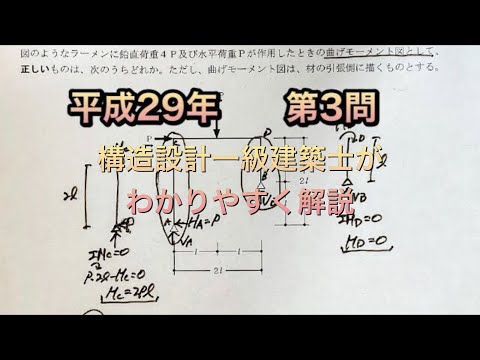 図のようなラーメンに鉛直荷重4P及び水平荷重Pが作用したときの曲げモーメント図として、
正しいものは、次のうちどれか。ただし、曲げモーメント図は、材の引張側に描くものとする。
平成29年 第3問
構造設計一級建築士が
わかりやすく解説
P
D
2l
l
2l
B
VB
A
HA=P
VA
l l
2l
ΣMC=0
P·2l-MC=0
MC=2Pl
ΣMD=0
MD=0